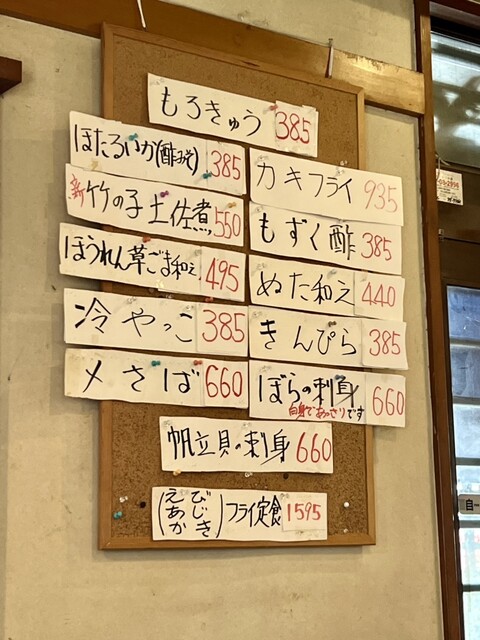 もろきゅう 385
ほたるいか(酢みそ) 385
カキフライ 935
新 竹の子土佐煮 550
もずく酢 385
ほうれん草ごま和え 495
ぬた和え 440
冷やっこ 385
きんぴら 385
〆さば 660
ぼらの刺身 660
白身であっさりです
帆立貝の刺身 660
(えび あじ かき)フライ定食 1595